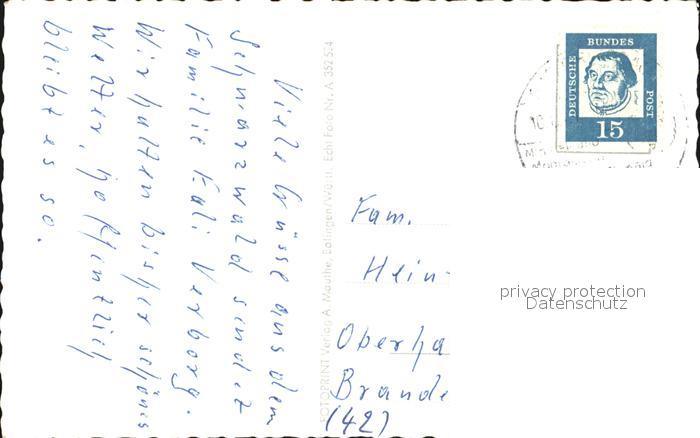 Viele Grüsse aus dem
Schwarzwald sendet
Familie Verborg.
Wir hatten bisher schönes
Wetter, hoffentlich
bleibt es so.
FOTOPRINT Verlag A. Mauthe, Echt Foto Nr. A 352 S4
Fam.
Hein-
Oberha
Brande
(42)
DEUTSCHE
BUNDES
POST
15
privacy protection
Datenschutz